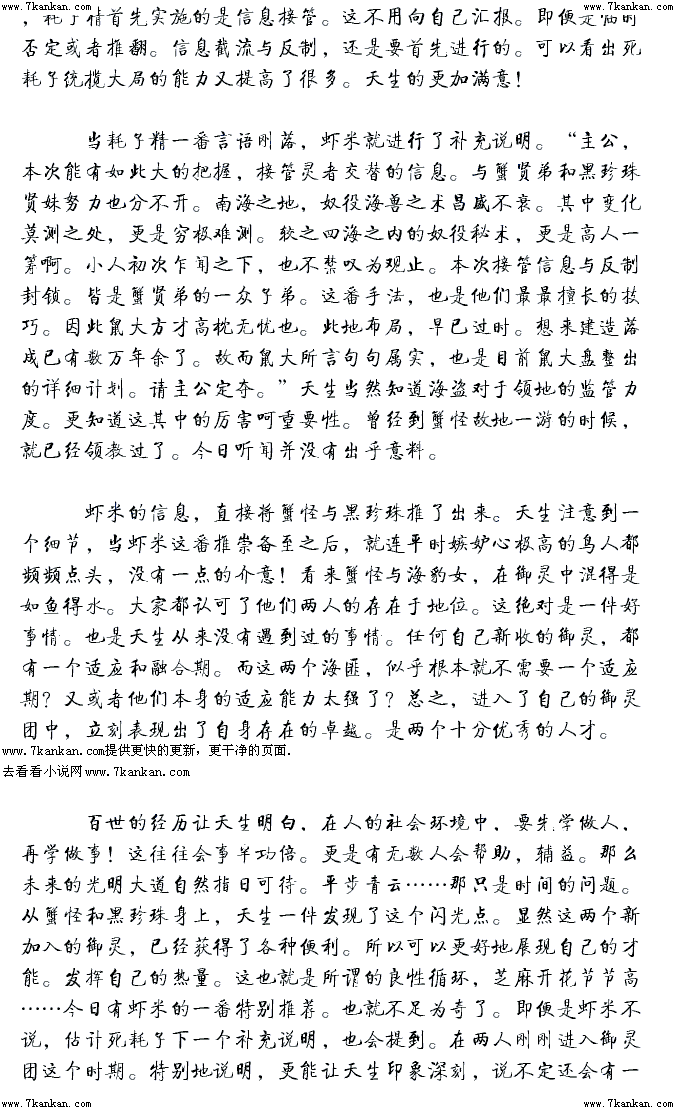 www.7kankan.com www.7kankan.com
，耗子精首先实施的是信息接管。这不用向自己汇报。即便是临时
否定或者推翻。信息截流与反制，还是要首先进行的。可以看出死
耗子统揽大局的能力又提高了很多。天生的更加满意！
当耗子精一番言语刚落，虾米就进行了补充说明。“主公，
本次能有如此大的把握，接管灵者交替的信息。与蟹贤弟和黑珍珠
贤妹努力也分不开。南海之地，奴役海兽之术昌盛不衰。其中变化
莫测之处，更是穷极难测。较之四海之内的奴役秘术，更是高人一
筹啊。小人初次乍闻之下，也不禁叹为观止。本次接管信息与反制
封锁。皆是蟹贤弟的一众子弟。这番手法，也是他们最最擅长的技
巧。因此鼠大方才高枕无忧也。此地布局，早已过时。想来建造落
成已有数万年余了。故而鼠大所言句句属实，也是目前鼠大盘整出
的详细计划。请主公定夺。”天生当然知道海盗对于领地的监管力
度。更知道这其中的厉害呵重要性。曾经到蟹怪故地一游的时候，
就已经领教过了。今日听闻并没有出乎意料。
虾米的信息，直接将蟹怪与黑珍珠推了出来。天生注意到一
个细节，当虾米这番推崇备至之后，就连平时嫉妒心极高的鸟人都
频频点头，没有一点的介意！看来蟹怪与海豹女，在御灵中混得是
如鱼得水。大家都认可了他们两人的存在于地位。这绝对是一件好
事情。也是天生从来没有遇到过的事情。任何自己新收的御灵，都
有一个适应和融合期。而这两个海匪，似乎根本就不需要一个适应
期？又或者他们本身的适应能力太强了？总之，进入了自己的御灵
团中，立刻表现出了自身存在的卓越。是两个十分优秀的人才。
www.7kankan.com提供更快的更新，更干净的页面.
去看看小说网www.7kankan.com
百世的经历让天生明白，在人的社会环境中，要先学做人，
再学做事！这往往会事半功倍。更是有无数人会帮助，辅益。那么
未来的光明大道自然指日可待。平步青云……那只是时间的问题。
从蟹怪和黑珍珠身上，天生一件发现了这个闪光点。显然这两个新
加入的御灵，已经获得了各种便利。所以可以更好地展现自己的才
能。发挥自己的热量。这也就是所谓的良性循环，芝麻开花节节高
……今日有虾米的一番特别推荐。也就不足为奇了。即便是虾米不
说，估计死耗子下一个补充说明，也会提到。在两人刚刚进入御灵
团这个时期。特别地说明，更能让天生印象深刻，说不定还会有一
www.7kankan.com www.7kankan.com